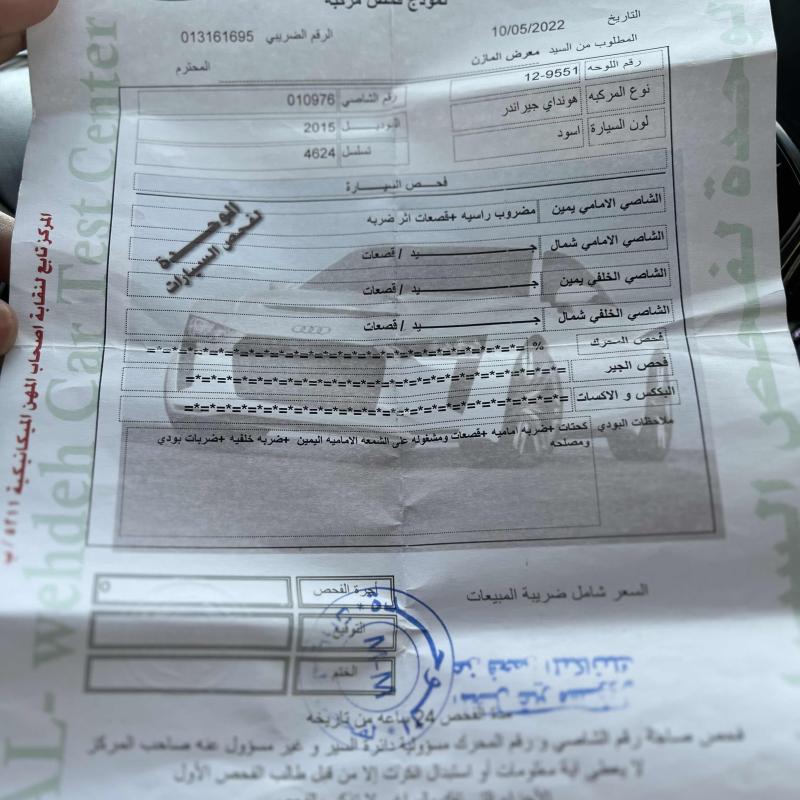 نموذج فحص مركبة
التاريخ 10/05/2022 الرقم الضريبي 013161695
المطلوب من السيد معرض المازن المحترم
رقم اللوحه 12-9551 رقم الشاصي 010976
نوع المركبه هونداي جيراندر الموديل 2015
لون السيارة اسود تسلسل 4624
فحص السيارة
الوحدة
لفحص السيارات
الشاصي الامامي يمين مضروب راسيه +قصعات اثر ضربه
الشاصي الامامي شمال جيد / قصعات
الشاصي الخلفي يمين جيد / قصعات
الشاصي الخلفي شمال جيد / قصعات
فحص المحرك % =*=*=*=*=*=*=*=*=*=*=*=*=*=*=*=*=*=*=*=
فحص الجير =*=*=*=*=*=*=*=*=*=*=*=*=*=*=*=*=*=*=*=
البكس و الاكسات =*=*=*=*=*=*=*=*=*=*=*=*=*=*=*=*=*=*=*=
ملاحظات البودي كحتات +ضربه اماميه +قصعات ومشغوله على الشمعه الاماميه اليمين +ضربه خلفيه +ضربات بودي
ومصلحه
السعر شامل ضريبة المبيعات
أجرة الفحص 0
التوقيع
الختم
مدة الفحص 24 ساعه من تاريخه
فحص صلاحة رقم الشاصي و رقم المحرك مسؤولية دائرة السير و غير مسؤول عنه صاحب المركز
لا يعطى أية معلومات أو استبدال الكرت إلا من قبل طالب الفحص الأول
المركز تابع لنقابة اصحاب المهن الميكانيكية ٥٢١١ / ب
AL- wehdeh Car Test Center